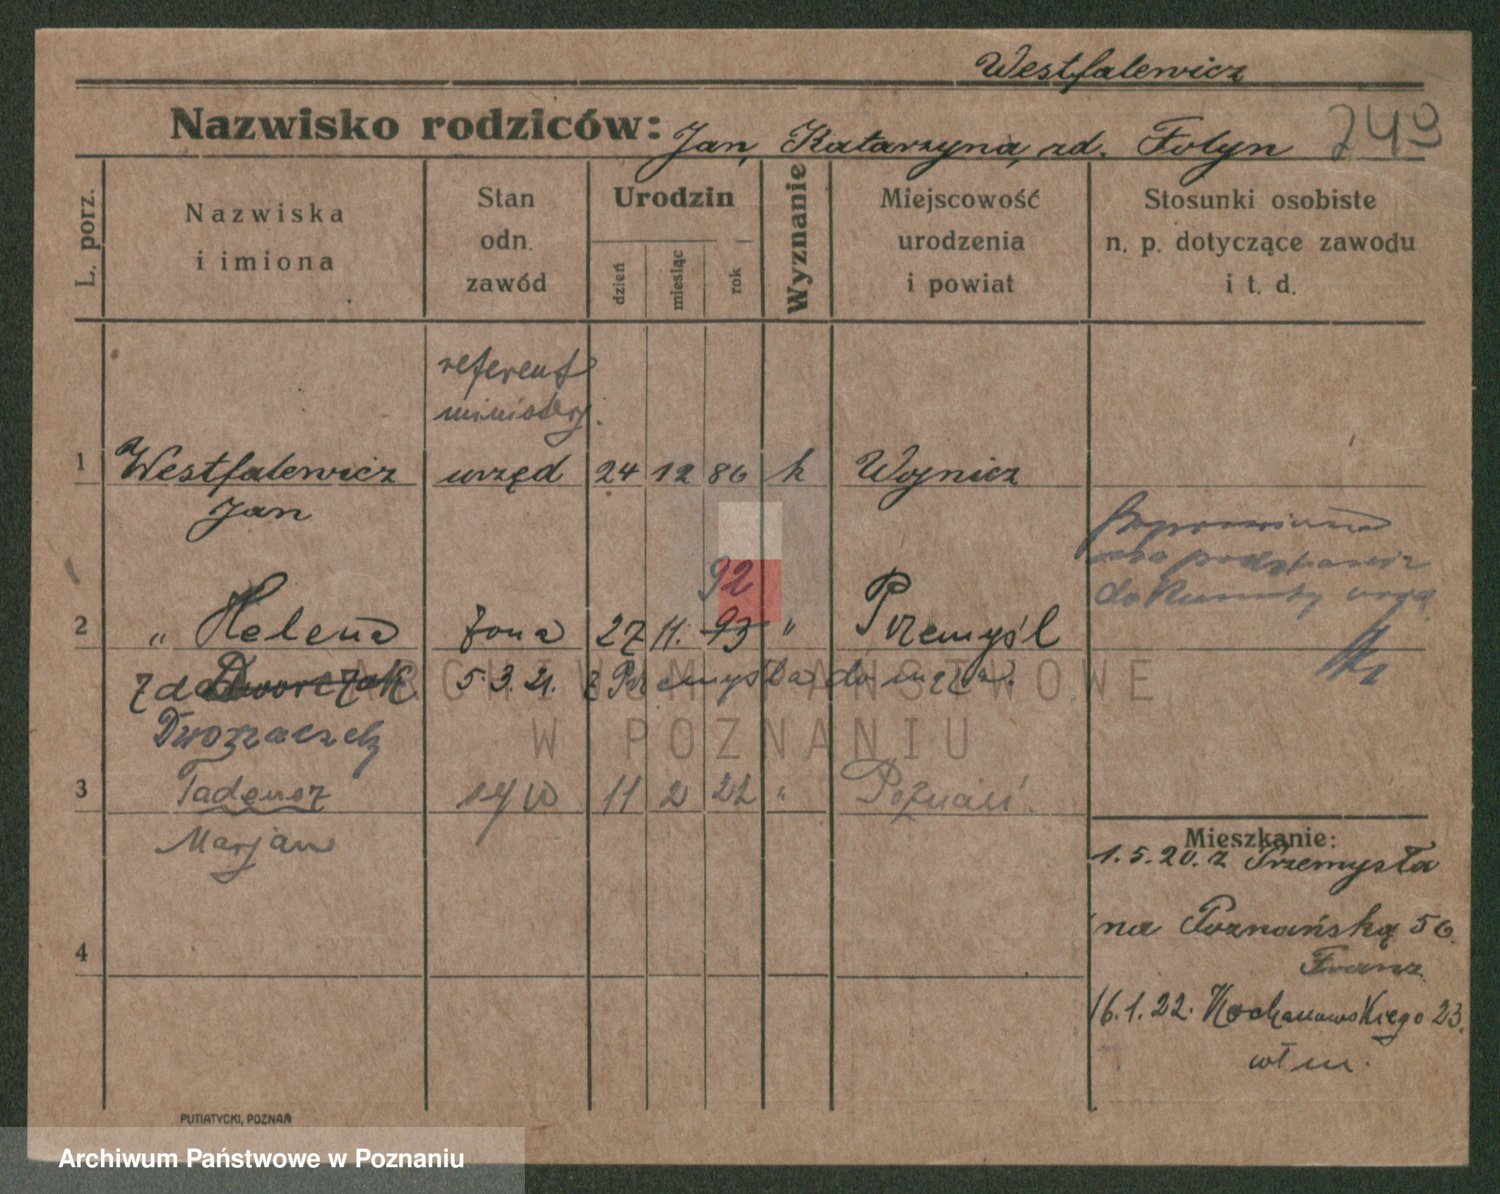 Westfalewicz
Nazwisko rodziców: Jan, Katarzyna, zd. Folyn
249
L. porz.
Nazwiska
i imiona
Stan
odn.
zawód
Urodzin
dzień
miesiąc
rok
Wyznanie
Miejscowość
urodzenia
i powiat
Stosunki osobiste
n. p. dotyczące zawodu
i t. d.
referent
ministerj.
1 Westfalewicz urzęd 24 12 86 k Wojnicz
Jan
poprawiono
na podstawie
dokumenty
92
2 " Helena żona 27 11. 93 " Przemyśl
z d Dworczak 5.3.21. z Przemyśla do męża.
Dwo
3 Tadeusz syn 11 2 22 " Poznań.
Marjan
Mieszkanie:
1.5.20. z Przemyśla
na Poznańską 56
Franz
4
16.1.22. Kochanowskiego 23.
wł m.
PUTIATYCKI, POZNAŃ
ARCHIWUM PAŃSTWOWE
W POZNANIU
Archiwum Państwowe w Poznaniu